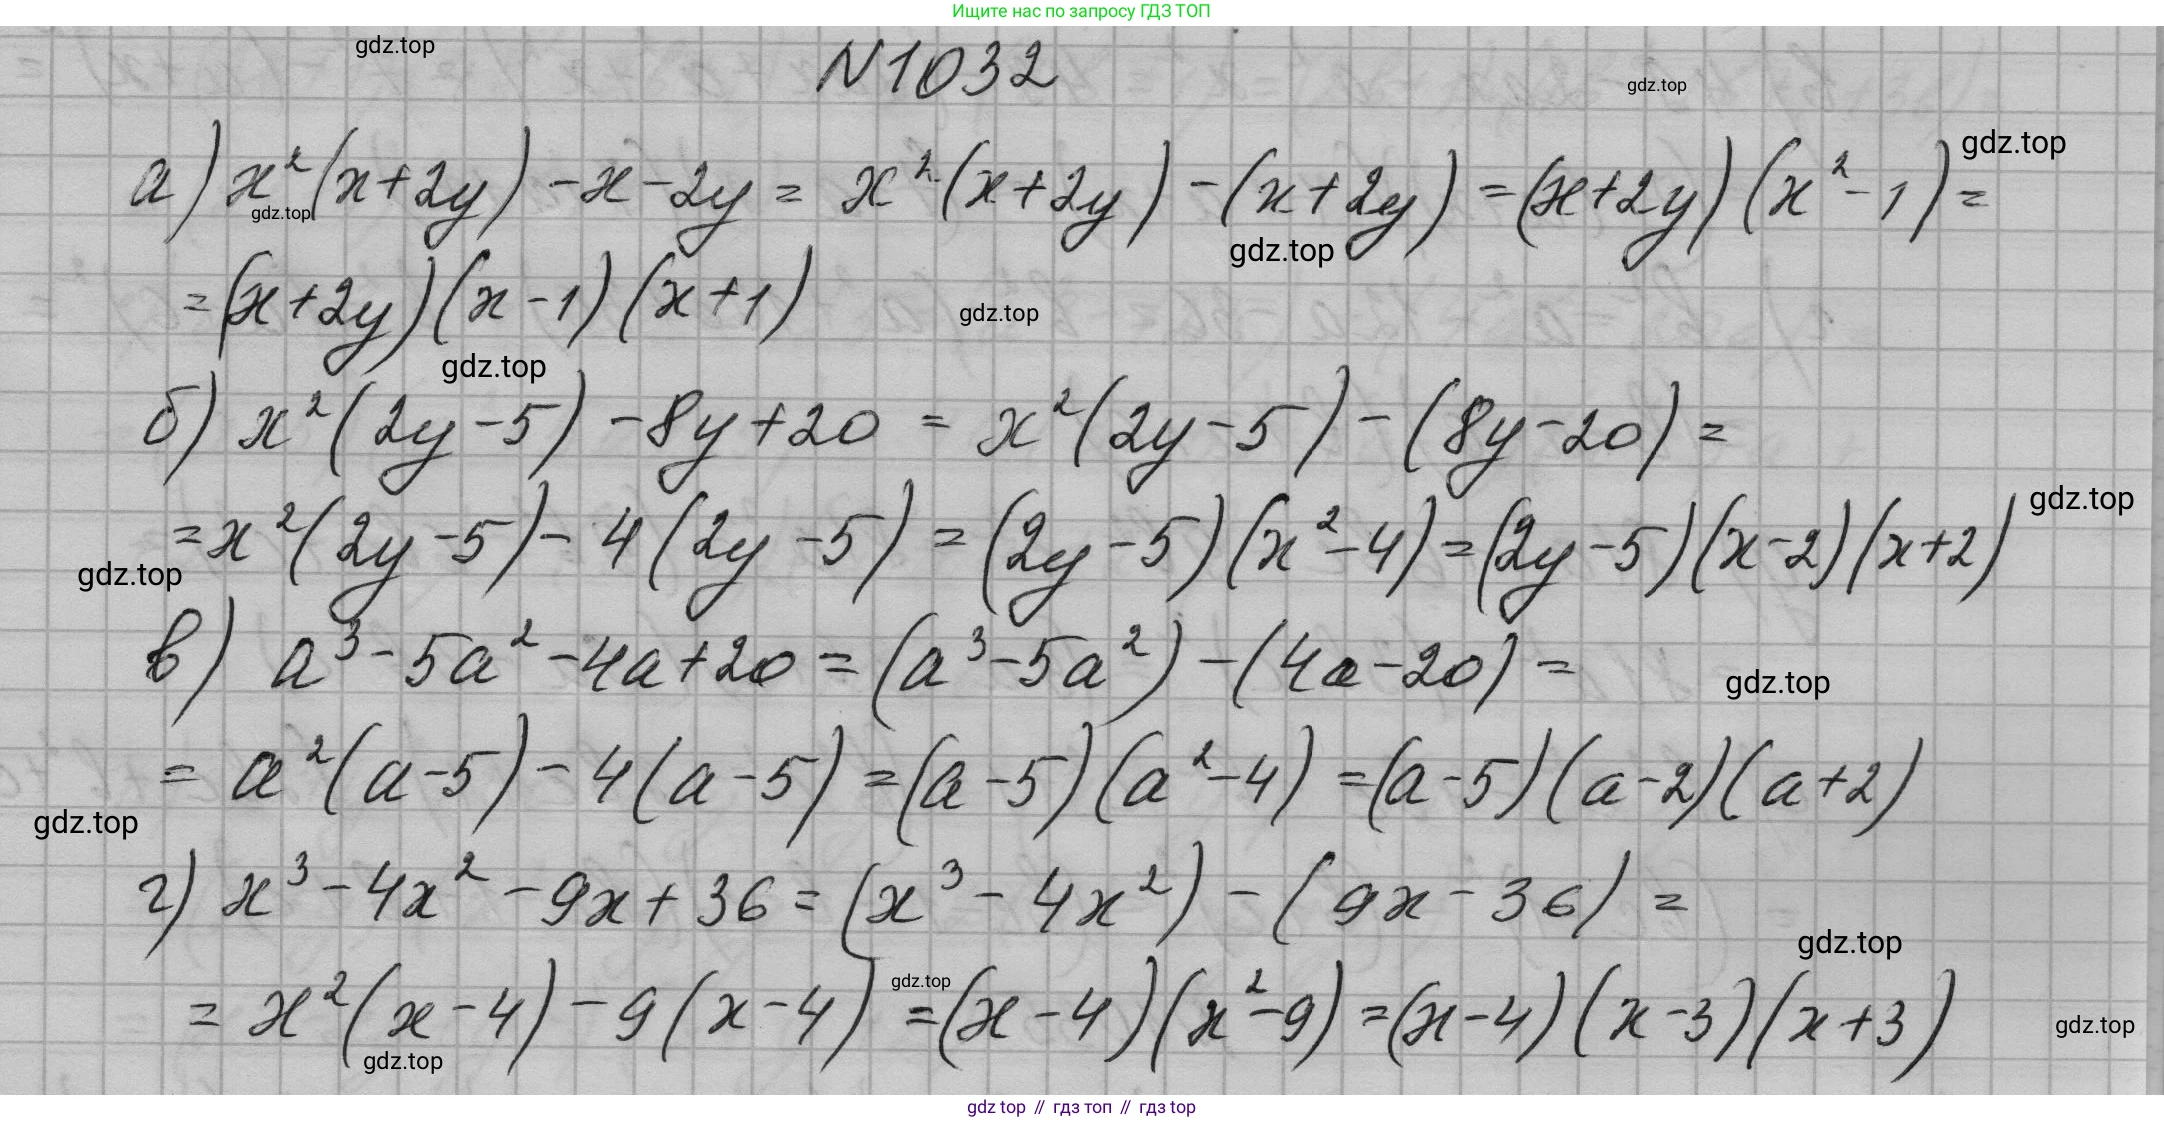 Ищите нас по запросу ГДЗ ТОП
gdz.top
N1032
gdz.top
gdz.top
а) x²(x+2y)-x-2y = x²(x+2y)-(x+2y)=(x+2y)(x²-1)=
gdz.top
gdz.top
=(x+2y)(x-1)(x+1)
gdz.top
gdz.top
б) x²(2y-5)-8y+20 = x²(2y-5)-(8y-20)=
gdz.top
=x²(2y-5)-4(2y-5)=(2y-5)(x²-4)=(2y-5)(x-2)(x+2)
gdz.top
в) a³-5a²-4a+20=(a³-5a²)-(4a-20)=
gdz.top
= a²(a-5)-4(a-5)=(a-5)(a²-4)=(a-5)(a-2)(a+2)
gdz.top
г) x³-4x²-9x+36=(x³-4x²)-(9x-36)=
gdz.top
gdz.top
= x²(x-4)-9(x-4)=(x-4)(x²-9)=(x-4)(x-3)(x+3)
gdz.top
gdz.top
gdz top // гдз топ // гдз top